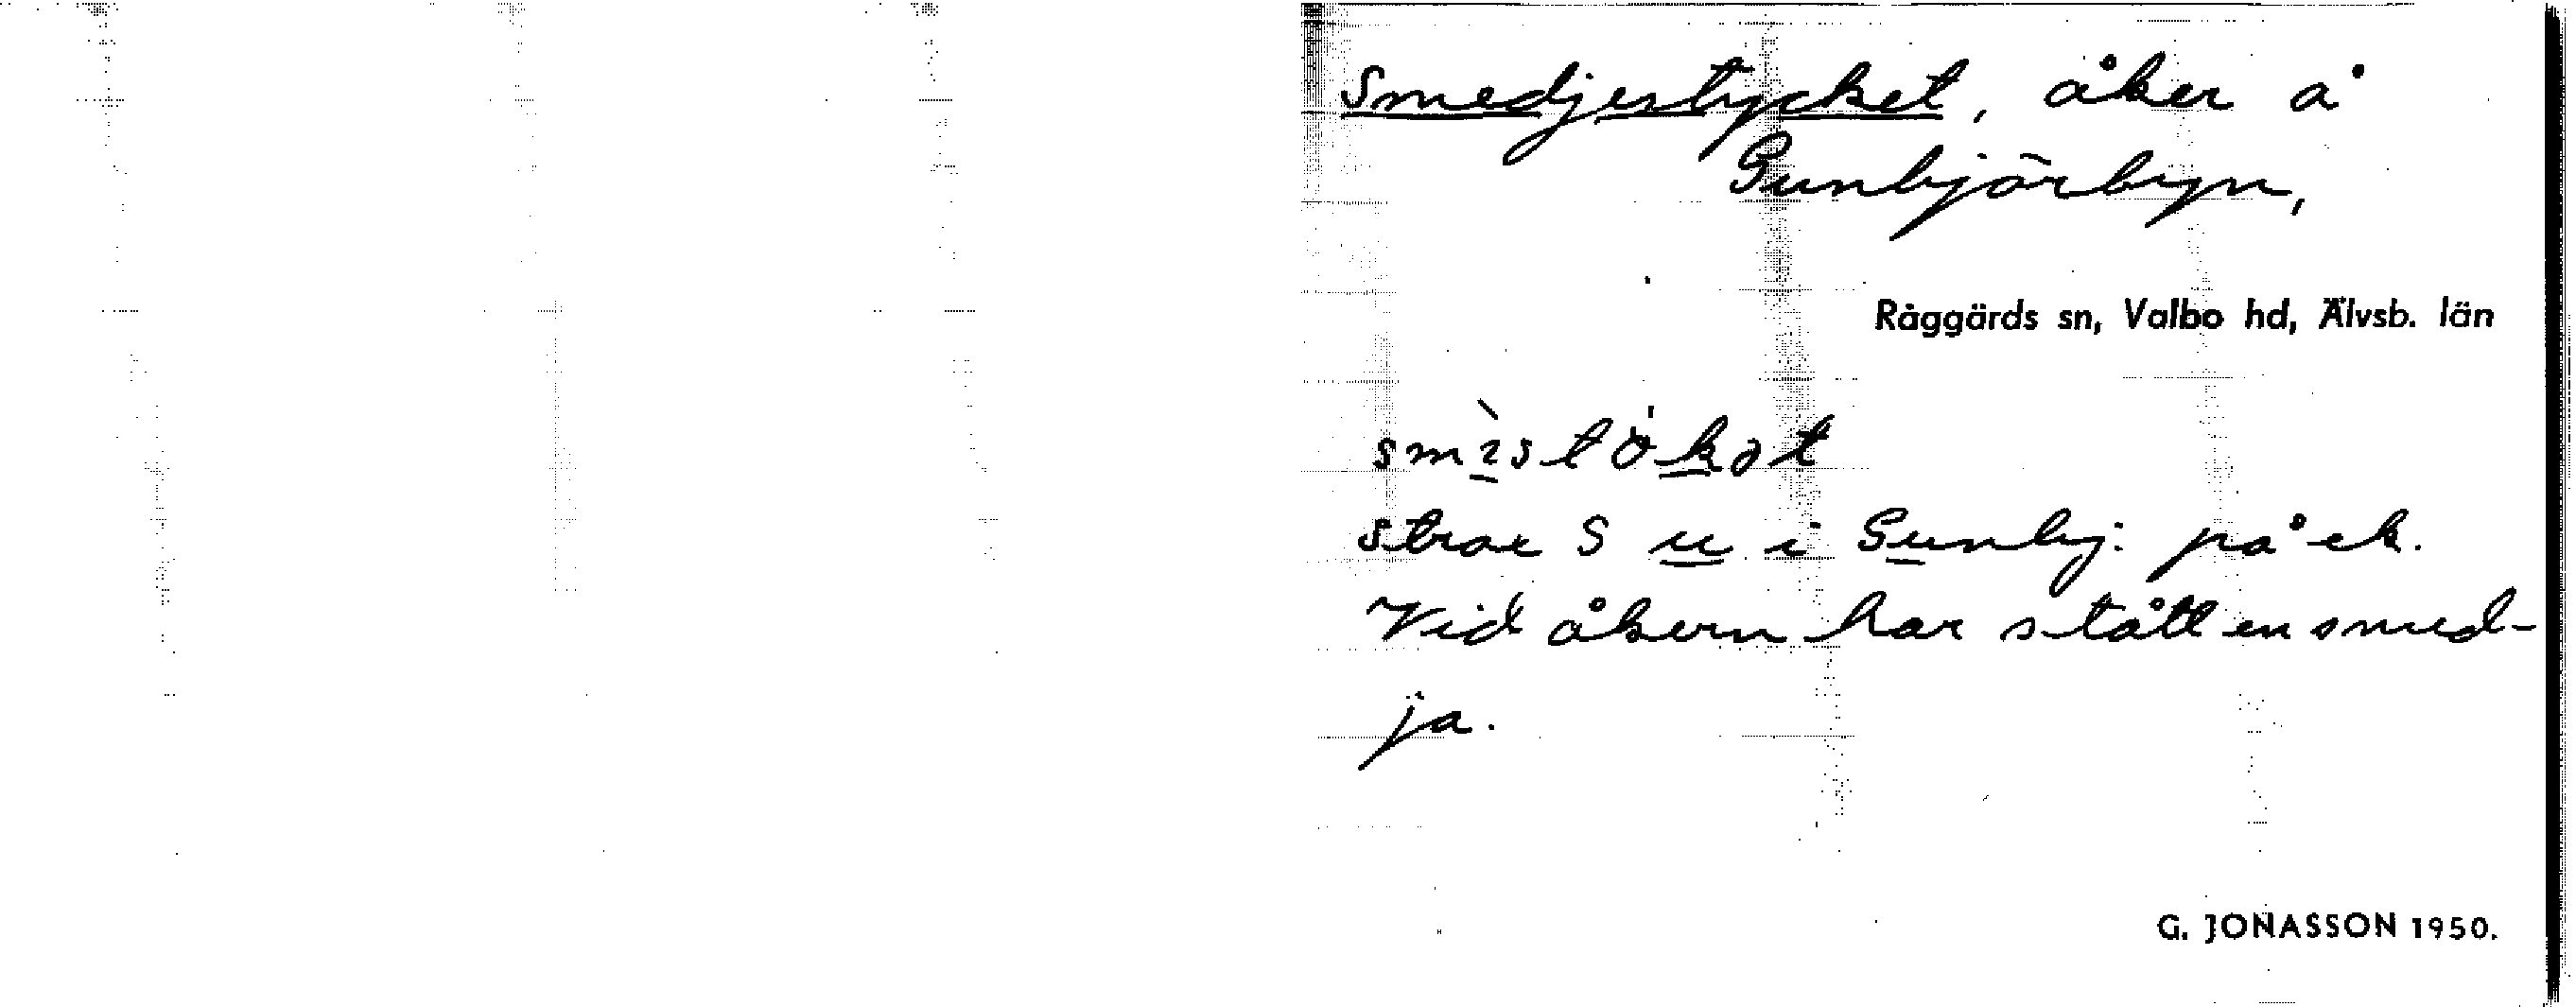 Smedjestycket, åker å
Gunbjörbyn,
Råggärds sn, Valbo hd, Älvsb. län
strax S u i Gunbj: på ek.
Vid åkern har stått en smed-
ja.
G. JONASSON 1950.